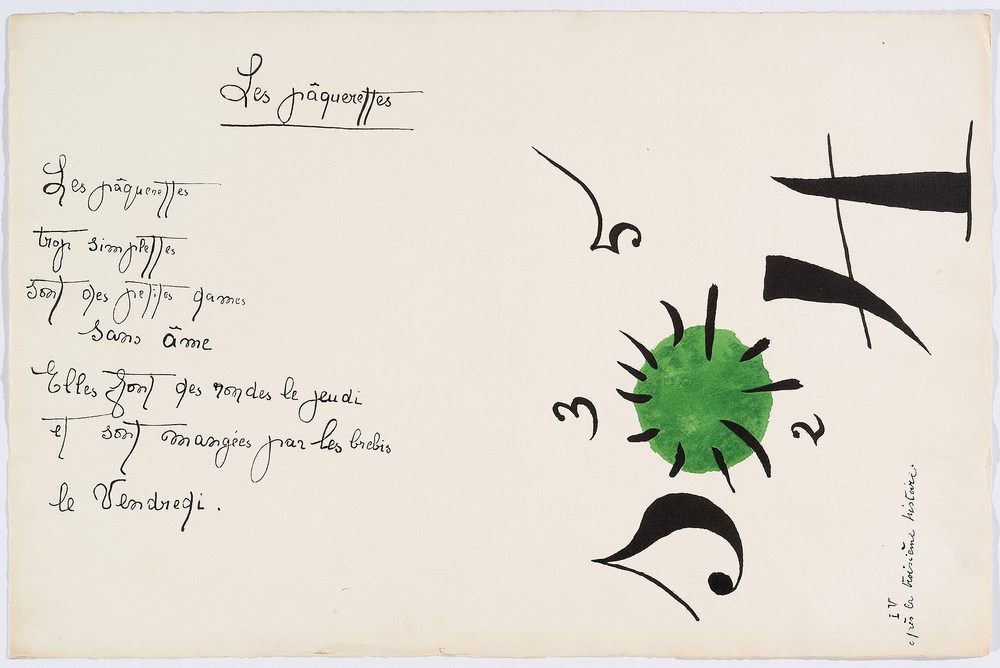 Les pâquerettes
Les pâquerettes
trop simplettes
sont des petites dames
sans âme
Elles font des rondes le jeudi
et sont mangées par les brebis
le Vendredi.
5
3
2
IV
après la troisième histoire.